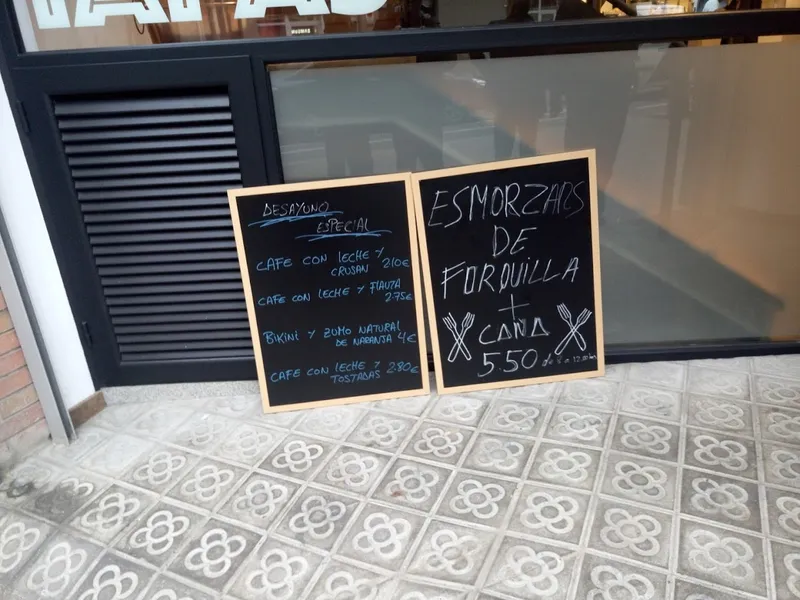 TAPAS
DESAYUNO
ESPECIAL
CAFE CON LECHE Y
CRUSAN 2'10€
CAFE CON LECHE Y FLAUTA
2.75€
BIKINI Y ZUMO NATURAL
DE NARANJA 4€
CAFE CON LECHE Y
TOSTADAS 2.80€
ESMORZARS
DE
FORQUILLA
+
CAÑA
5.50 de 8 a 12